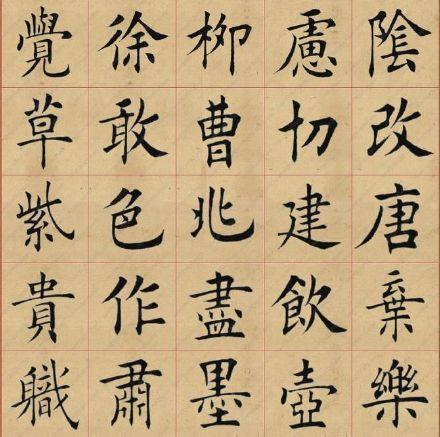 覺徐柳慮陰
草敢曹切改
紫色兆建唐
貴作盡飲棄
軄肅墨壺樂